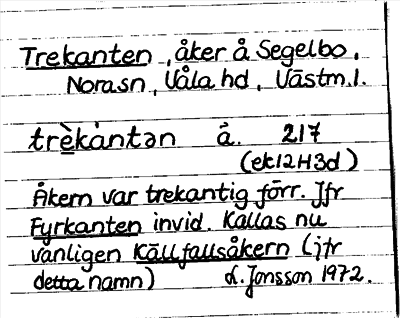 Trekanten, åker å Segelbo,
Nora sn, Våla hd, Västm.l.
trèkàntən å. 217
(ek12H3d)
Åkern var trekantig förr. Jfr
Fyrkanten invid. Kallas nu
vanligen Källfallsåkern (jfr
detta namn) L. Jonsson 1972.